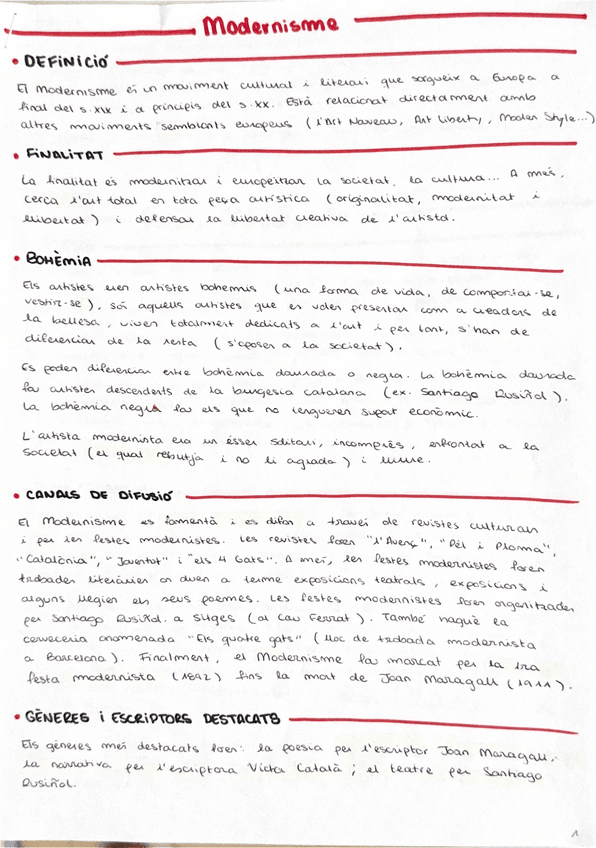 Modernisme
• DEFINICIÓ
El Modernisme és un moviment cultural i literari que sorgueix a Europa a
final del s.XIX i a principis del s.XX. Està relacionat directament amb
altres moviments semblants europeus (l'Art Noveau, Art Liberty, Moder Style...)
• FINALITAT
La finalitat és modernitzar i europeitzar la societat, la cultura... A més,
cerca l'art total en tota peça artística (originalitat, modernitat i
llibertat) i defensar la llibertat creativa de l'artista.
• BOHÈMIA
Els artistes eren artistes bohemis (una forma de vida, de comportar-se,
vestir-se), són aquells artistes que es volen presentar com a creadors de
la bellesa, viuen totalment dedicats a l'art i per tant, s'han de
diferenciar de la resta (s'oposen a la societat).
Es poden diferenciar entre bohèmia daurada o negra. La bohèmia daurada
fou artistes descendents de la burgesia catalana (ex. Santiago Rusiñol).
La bohèmia negra fou els que no tengueren suport econòmic.
L'artista modernista era un ésser solitari, incomprès, enfrontat a la
societat (el qual rebutja i no li agrada) i lliure.
• CANALS DE DIFUSIÓ
El Modernisme es fomentà i es difon a través de revistes culturals
i per les festes modernistes. Les revistes foren "l'Avenç", "Pèl i Ploma",
"Catalònia", "Joventut" i "els 4 Gats". A més, les festes modernistes foren
trobades literàries on duen a terme exposicions teatrals, exposicions i
alguns llegien els seus poemes. Les festes modernistes foren organitzades
per Santiago Rusiñol a Sitges (al Cau Ferrat). També hagué la
cerveceria anomenada "Els quatre gats" (lloc de trobada modernista
a Barcelona). Finalment, el Modernisme fou marcat per la 1ra
festa modernista (1892) fins la mort de Joan Maragall (1911).
• GÈNERES I ESCRIPTORS DESTACATS
Els gèneres més destacats foren: la poesia per l'escriptor Joan Maragall;
la narrativa per l'escriptora Víctor Català; el teatre per Santiago
Rusiñol.
1